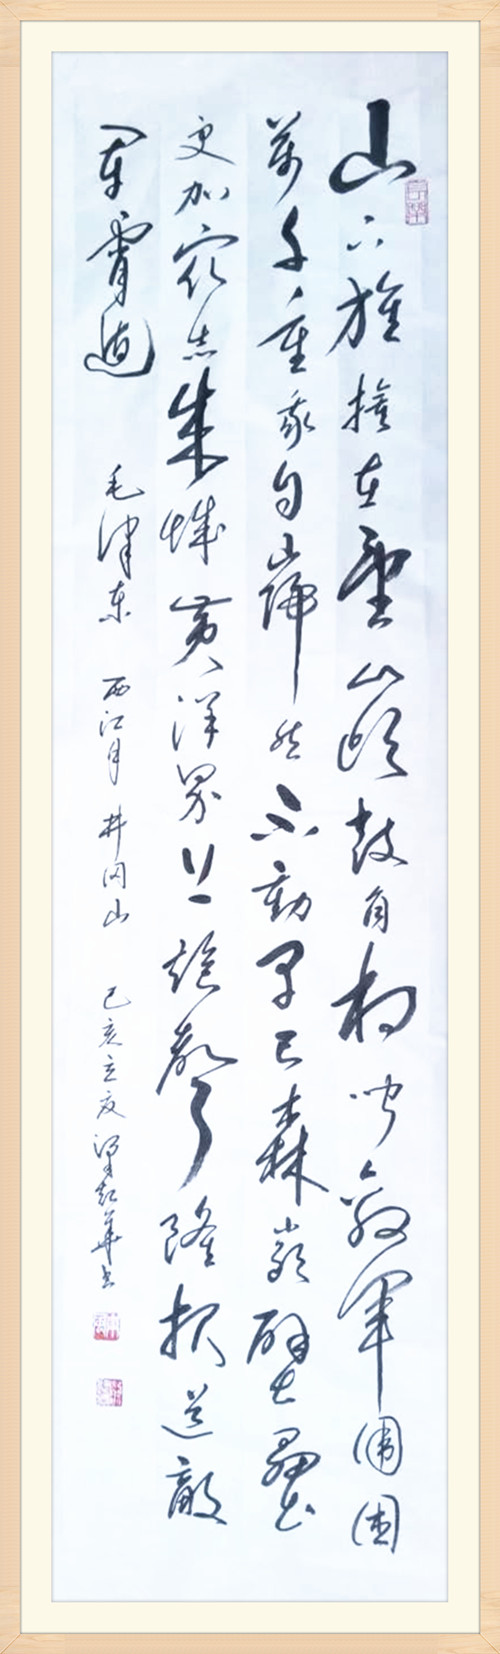 山下旌旗在望山頭鼓角相闻敌軍围困
萬千重我自巋然不動早已森嚴壁壘
更加众志成城黄洋界上炮聲隆报道敵
军宵遁 毛泽东 西江月 井冈山 己亥立夏